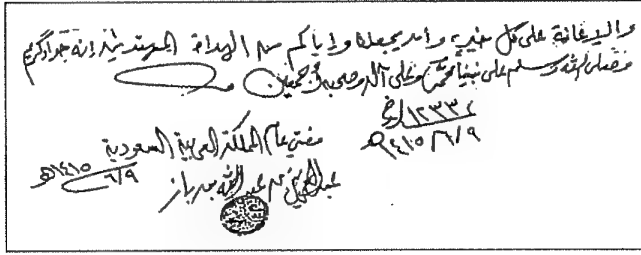 والإعانة على كل خير، وأن يجعلنا وإياكم من الهداة المهتدين إنه جواد كريم
وصلى الله وسلم على نبينا محمد وعلى آله وصحبه أجمعين
١٢٣٣٢/خ
١٤١٥/٦/٩هـ
مفتي عام المملكة العربية السعودية
٦/٩ ١٤١٥هـ
عبدالعزيز بن عبدالله بن باز